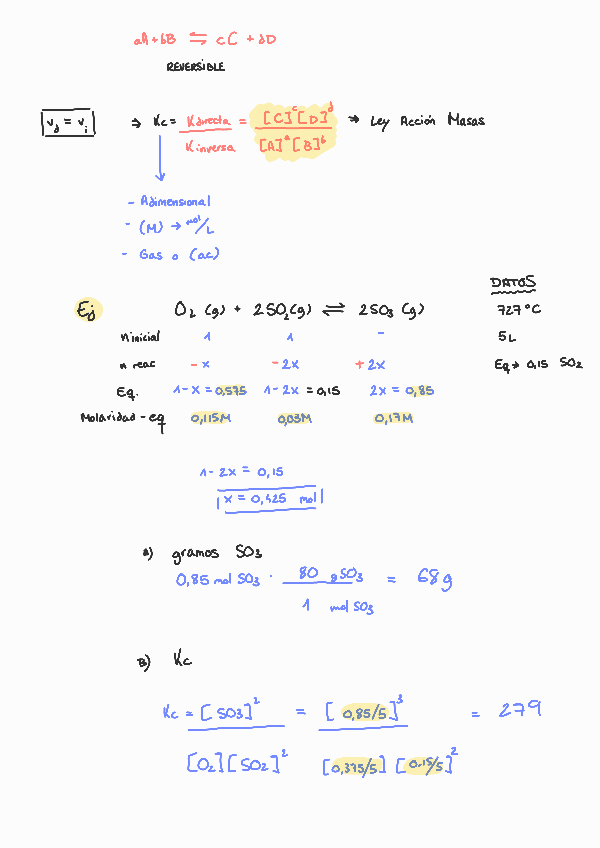 aA + bB ⇌ cC + dD
REVERSIBLE
v_d = v_i ⇒ Kc = Kdirecta / Kinversa = [C]^c [D]^d / [A]^a [B]^b → Ley Acción Masas
- Adimensional
- (M) → mol/L
- Gas o (ac)
DATOS
Ej O₂ (g) + 2SO₂ (g) ⇌ 2SO₃ (g) 727°C
n inicial 1 1 - 5L
n reac - x - 2x + 2x Eq → 0,15 SO₂
Eq. 1-x = 0,575 1-2x = 0,15 2x = 0,85
Molaridad-eq 0,115M 0,03M 0,17M
1-2x = 0,15
x = 0,425 mol
A) gramos SO₃
0,85 mol SO₃ · 80 g SO₃ / 1 mol SO₃ = 68g
B) Kc
Kc = [SO3]² / [O₂][SO₂]² = [0,85/5]³ / [0,375/5] [0,15/5]² = 279